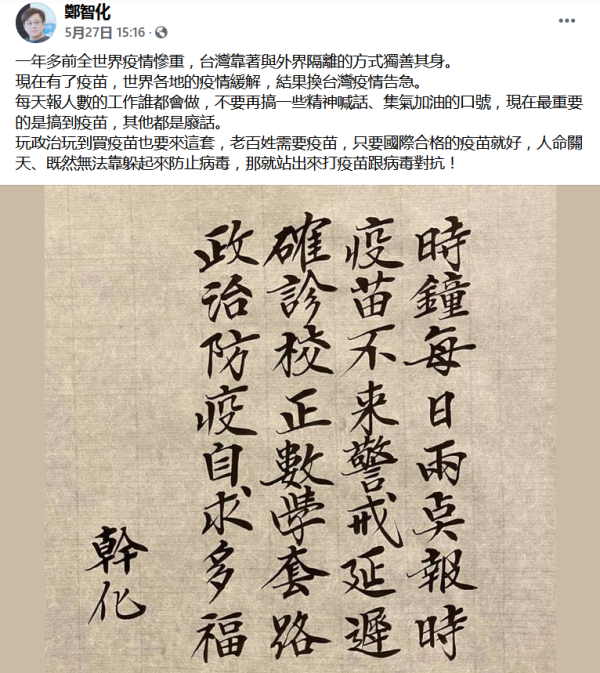 鄭智化
5月27日 15:16
一年多前全世界疫情慘重，台灣靠著與外界隔離的方式獨善其身。
現在有了疫苗，世界各地的疫情緩解，結果換台灣疫情告急。
每天報人數的工作誰都會做，不要再搞一些精神喊話、集氣加油的口號，現在最重要
的是搞到疫苗，其他都是廢話。
玩政治玩到買疫苗也要來這套，老百姓需要疫苗，只要國際合格的疫苗就好，人命關
天、既然無法靠躲起來防止病毒，那就站出來打疫苗跟病毒對抗！
時鐘每日兩点報時
疫苗不来警戒延遲
確診校正數學套路
政治防疫自求多福
幹化